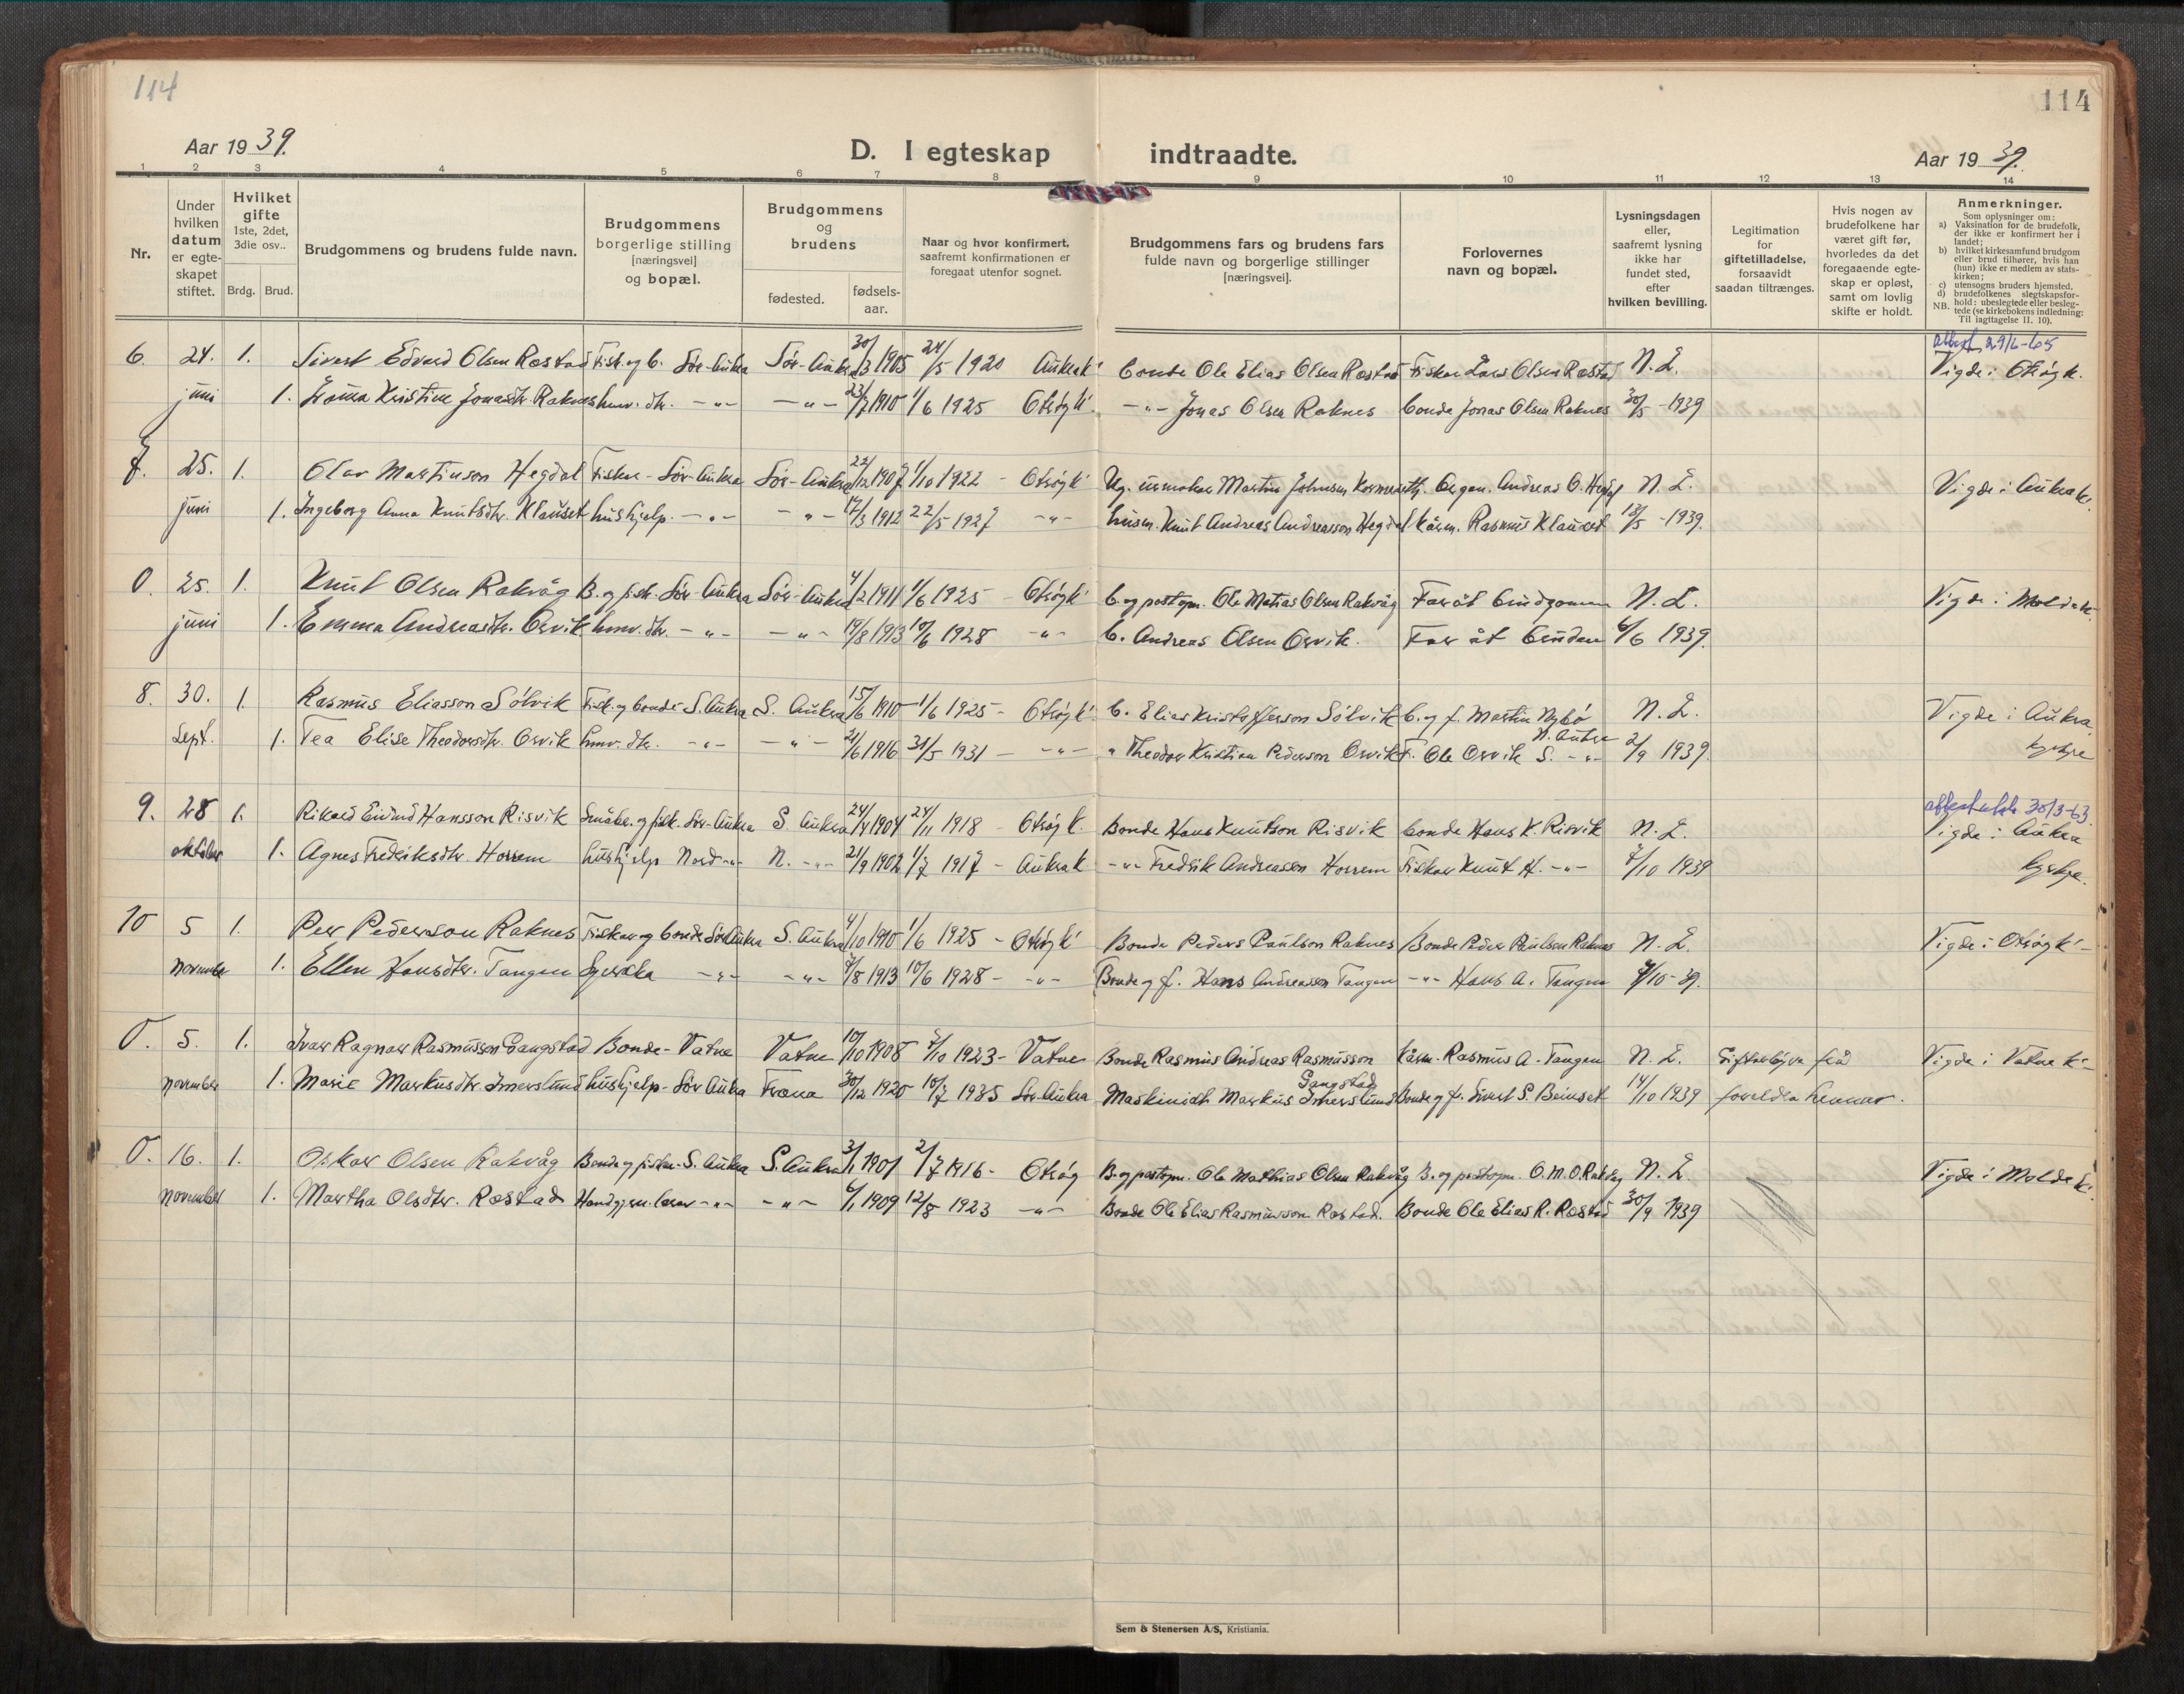 114
114
Aar 1939.
D. I egteskap indtraadte.
Aar 1939.
1 2 3 4 5 6 7 8 9 10 11 12 13 14
Nr.
Under hvilken datum er egte-skapet stiftet.
Hvilket gifte 1ste, 2det, 3die osv..
Brdg. Brud.
Brudgommens og brudens fulde navn.
Brudgommens borgerlige stilling [næringsvei] og bopæl.
Brudgommens og brudens
fødested.
fødsels-aar.
Naar og hvor konfirmert, saafremt konfirmationen er foregaat utenfor sognet.
Brudgommens fars og brudens fars fulde navn og borgerlige stillinger [næringsvei].
Forlovernes navn og bopæl.
Lysningsdagen eller, saafremt lysning ikke har fundet sted, efter hvilken bevilling.
Legitimation for giftetilladelse, forsaavidt saadan tiltrænges.
Hvis nogen av brudefolkene har været gift før, hvorledes da det foregaaende egte-skap er opløst, samt om lovlig skifte er holdt.
Anmerkninger.
Som oplysninger om:
a) Vaksination for de brudefolk, der ikke er konfirmert her i landet;
b) hvilket kirkesamfund brudgom eller brud tilhører, hvis han (hun) ikke er medlem av stats-kirken;
c) utensogns bruders hjemsted.
d) brudefolkenes slegtskapsfor-hold: ubeslegtede eller besleg-tede (se kirkebokens indledning: Til iagttagelse II. 10).
NB.
attest 29/6-65
6. 24. 1. Sivert Edvard Olsen Røstad Fisk. og b. Sør-Aukra Sør-Aukra 30/3 1905 24/5 1920 Aukrak. bonde Ole Elias Olsen Røstad Fiskar Lars Olsen Røstad N. L. Vigde i Otrøyk.
juni 1. Kristine Jonasdtr. Raknes heimv. dtr. -"- -"- 1910 1/6 1925 Otrøyk. -"- Jonas Olsen Raknes bonde Jonas Olsen Raknes 30/5 -1939
7. 25. 1. Olav Martinson Hegdal Fiskar - Sør-Aukra Sør-Aukra 22/12 1907 1/10 1922 - Otrøyk. Ug. urmakar Martin Johnsen Andreas O. Hegdal N. L. Vigde i Aukrak.
juni 1. Ingeborg Anna Knutsdtr. Klauset hushjelp. -"- -"- 17/3 1912 22/5 1927 -"- husm. Knut Andreas Andreasson Hegdal kårm. Rasmus Klauset 13/5 -1939.
0. 25. 1. Knut Olsen Rakvåg B. og fisk. Sør-Aukra Sør-Aukra 4/2 1911 1/6 1925 - Otrøyk. b. og postopn. Ole Matias Olsen Rakvåg Far åt brudgomen N. L. Vigde i Moldek.
juni 1. Emma Andreasdtr. Orvik heimv. dtr. -"- -"- 19/8 1913 10/6 1928 -"- b. Andreas Olsen Orvik. Far åt bruden 6/6 1939.
8. 30. 1. Rasmus Eliasson Sølvik Fisk. og bonde S. Aukra S. Aukra 15/6 1910 1/6 1925 - Otrøyk. b. Elias Kristofferson Sølvik b. og f. Martin Nybø N. L. Vigde i Aukra
N. Aukra
Sept. 1. Tea Elise Theodorsdtr. Orvik heimv. dtr. -"- -"- 21/6 1916 31/5 1931 - -"- " Theodor Kristian Pederson Orvik F. Ole Orvik S. -"- 2/9 1939. kyrkje
attest utst. 30/3-63.
9. 28 1. Rikard Eivind Hansson Risvik Småbr. og fisk. Sør-Aukra S. Aukra 24/4 1904 24/11 1918 - Otrøyk. Bonde Hans Knutson Risvik bonde Hans K. Risvik N. L. Vigde i Aukra
oktober 1. Agnes Fredriksdtr. Horrem hushjelp Nord -"- N. -"- 21/9 1902 1/7 1917 - Aukrak -"- Fredrik Andreassen Horrem Fiskar Knut H. -"- 7/10 1939 kyrkje.
10 5 1. Per Pederson Raknes Fiskar og bonde Sør Aukra S. Aukra 4/10 1910 1/6 1925 - Otrøyk. Bonde Peder Paulson Raknes Bonde Peder Paulsen Raknes N. L. Vigde i Otrøyk. -
November 1. Ellen Hansdtr. Tangen Syerska -"- -"- 7/8 1913 10/6 1928 - -"- Bonde og f. Hans Andreassen Tangen -"- Hans A. Tangen 7/10 - 39.
0. 5. 1. Ivar Ragnar Rasmusson Gangstad Bonde - Vatne Vatne 10/10 1908 7/10 1923 - Vatne Bonde Rasmus Andreas Rasmusson Kårm. Rasmus A. Tangen N. L. Giftarløyve frå Vigde i Vatne k. -
Gangstad
november 1. Marie Markusdtr. Imerslund hushjelp - Sør Aukra Fræna 30/12 1920 10/7 1935 Sør-Aukra Maskinist Markus Imerslund Bonde og f. Sivert S. Beinset 14/10 1939 foreldra hennar.
0. 16. 1. Oskar Olsen Rakvåg Bonde og fiskar - S. Aukra S. Aukra 3/1 1901 2/7 1916 - Otrøy B. og postopn. Ole Mathias Olsen Rakvåg B. og postopn. O. M. O. Rakvåg N. L. Vigde i Molde k.
november 1. Martha Olsdtr. Røstad Handgjern. lærar -"- -"- 6/1 1909 12/8 1923 -"- Bonde Ole Elias Rasmusson Røstad. Bonde Ole Elias R. Røstad 30/9 1939
Sem & Stenersen A/S, Kristiania.